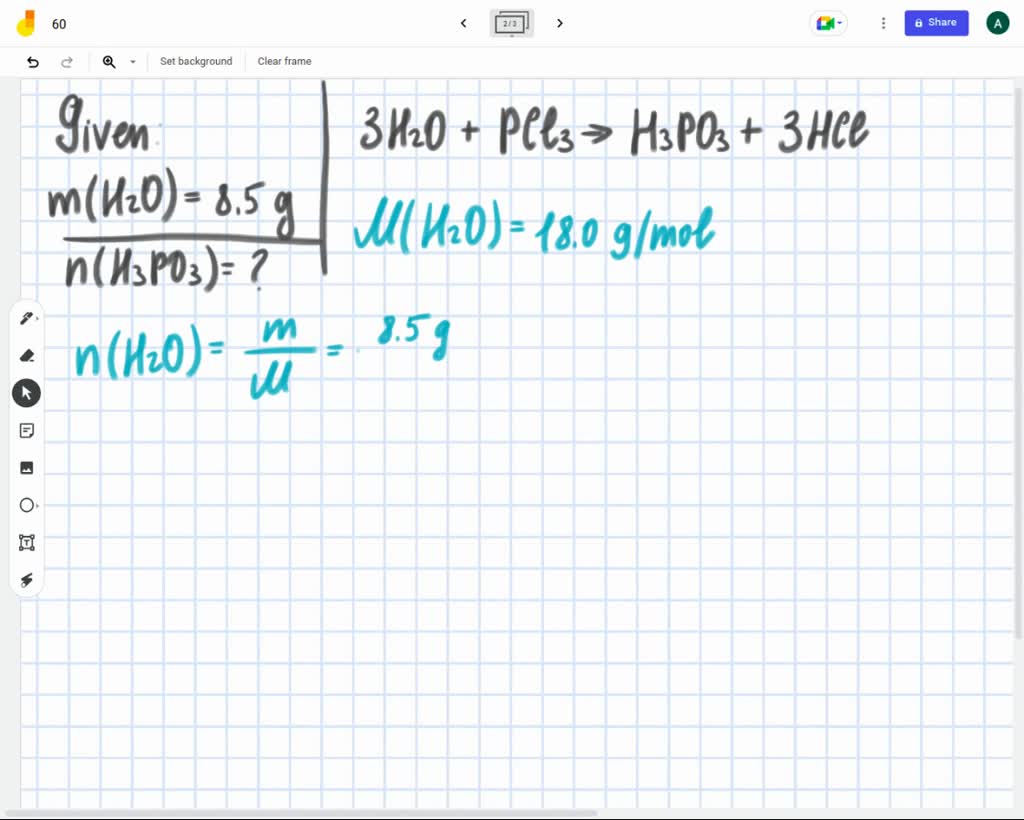 60
2 / 3
Share
A
Set background
Clear frame
Given:
m(H₂O) = 8.5 g
n(H₃PO₃) = ?
3H₂O + PCl₃ → H₃PO₃ + 3HCl
M(H₂O) = 18.0 g/mol
n(H₂O) = m/M = 8.5 g